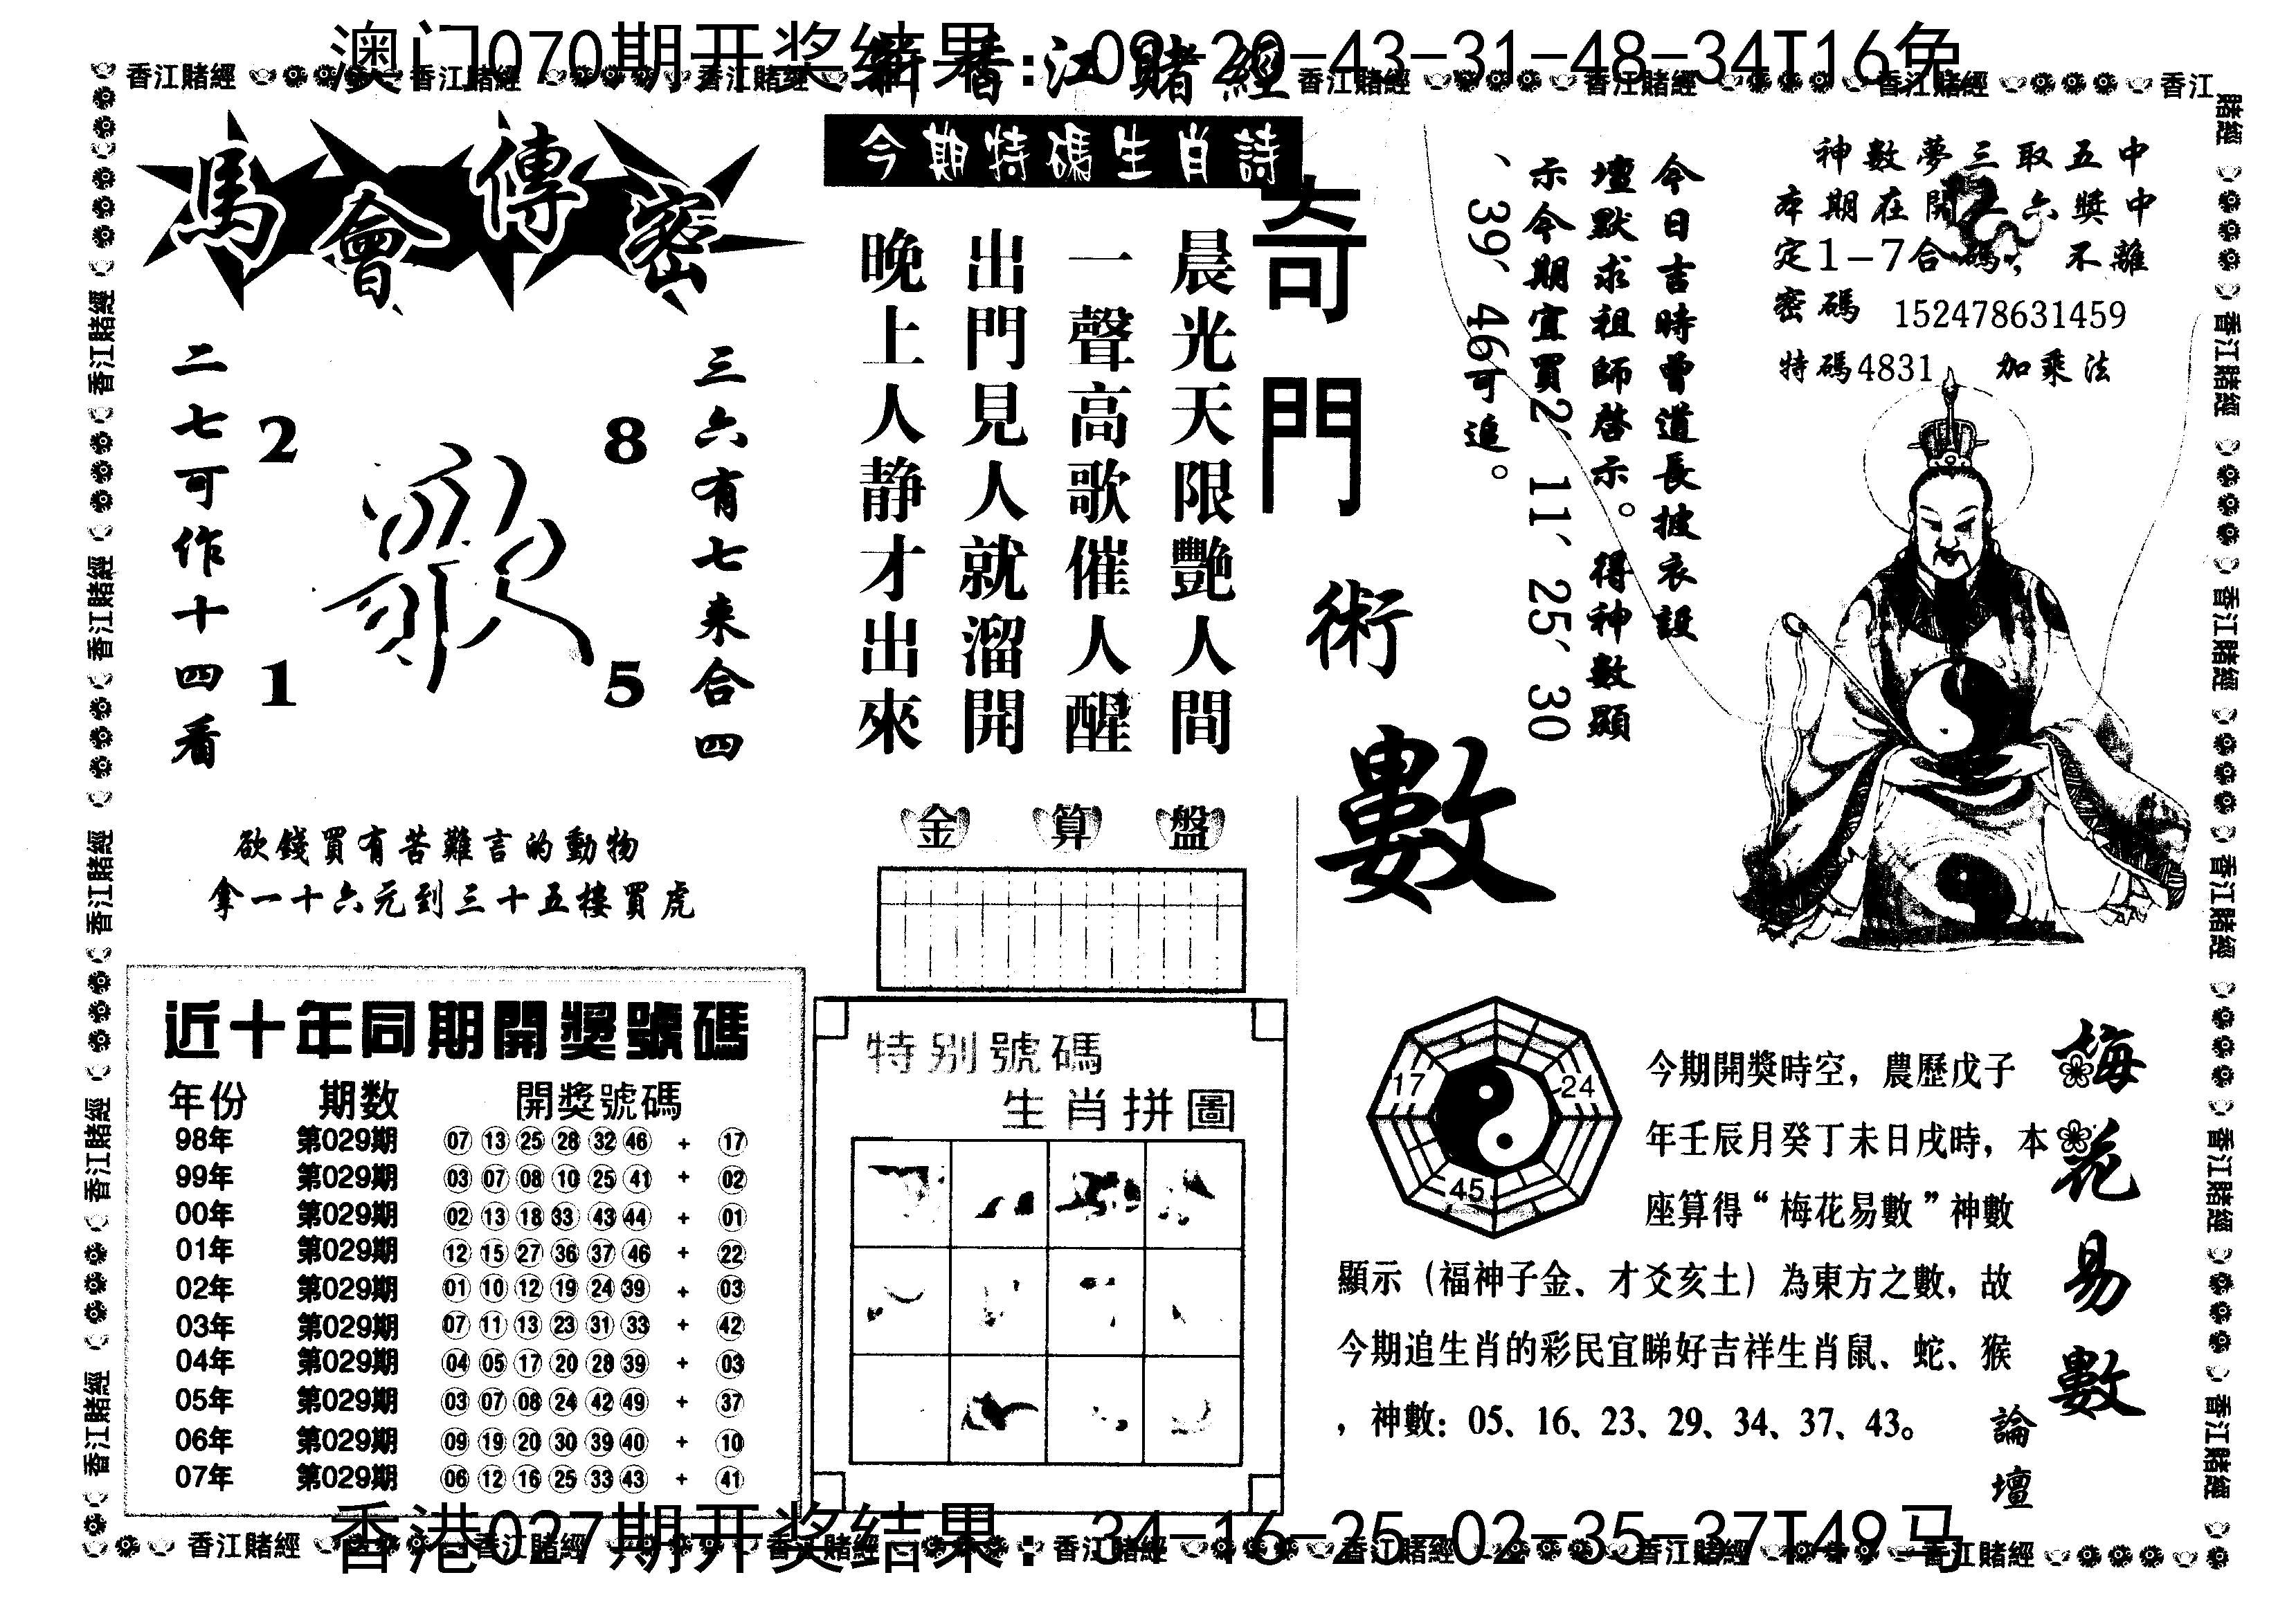 澳门070期开奖结果:09-20-43-31-48-34T16兔
新香江賭經
香江賭經 香江賭經 香江賭經 香江賭經 香江賭經 香江賭經 香江賭經
馬會傳密
二七可作十四看
三六有七来合四
2 8
1 5
欲錢買有苦難言的動物
拿一十六元到三十五樓買虎
今期特碼生肖詩
晨光天限艷人間
一聲高歌催人醒
出門見人就溜開
晚上人静才出來
金算盤
奇門術數
今日吉時曾道長披衣設
壇默求祖師啓示。得神數顯
示今期宜買2、11、25、30
、39、46可追。
神數夢三取五中
本期在開二六獎中
定1-7合碼,不離
密碼 152478631459
特碼4831 加乘法
近十年同期開獎號碼
年份 期数 開獎號碼
98年 第029期 07 13 25 28 32 46 + 17
99年 第029期 03 07 08 10 25 41 + 02
00年 第029期 02 13 18 33 43 44 + 01
01年 第029期 12 15 27 36 37 46 + 22
02年 第029期 01 10 12 19 24 39 + 03
03年 第029期 07 11 13 23 31 33 + 42
04年 第029期 04 05 17 20 28 39 + 03
05年 第029期 03 07 08 24 42 49 + 37
06年 第029期 09 19 20 30 39 40 + 10
07年 第029期 06 12 16 25 33 43 + 41
特别號碼
生肖拼圖
17 24
45
梅花易數
論壇
今期開獎時空，農歷戊子
年壬辰月癸丁未日戌時，本
座算得“梅花易數”神數
顯示（福神子金、才爻亥土）為東方之數，故
今期追生肖的彩民宜睇好吉祥生肖鼠、蛇、猴
，神數：05、16、23、29、34、37、43。
香港027期开奖结果:34-16-25-02-35-37T49马
香江賭經 香江賭經 香江賭經 香江賭經 香江賭經 香江賭經 香江賭經